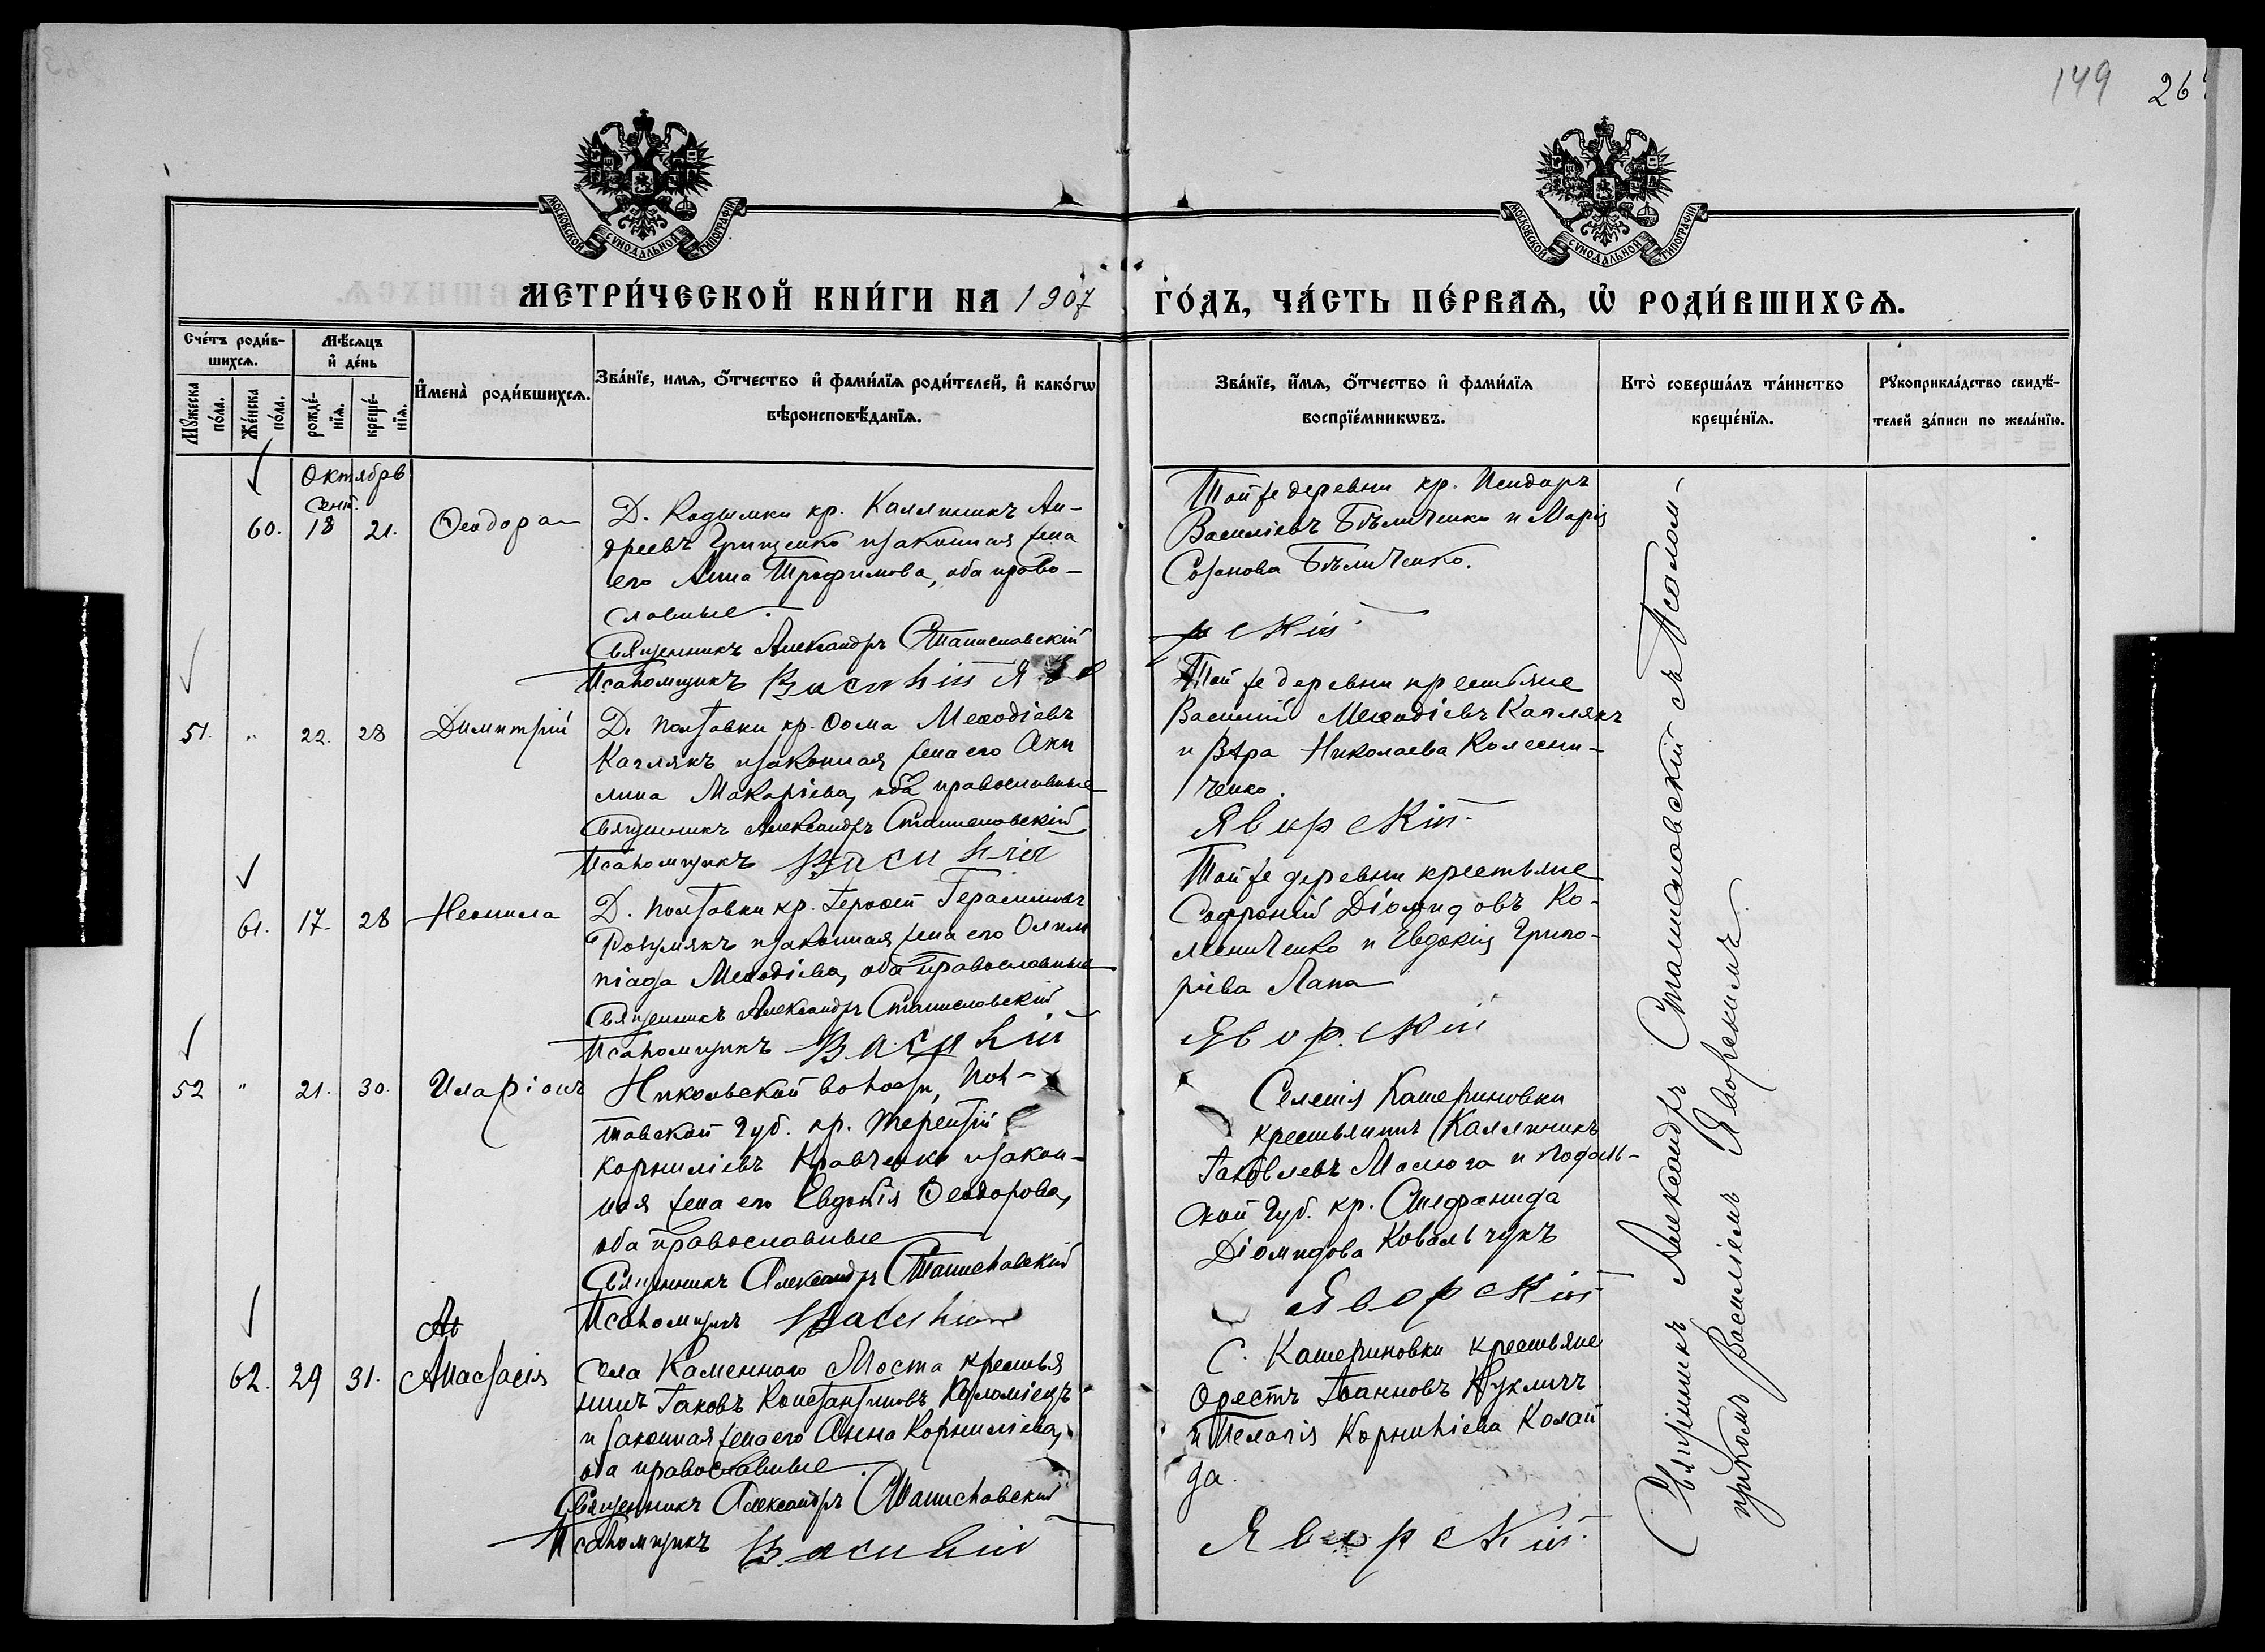 149 26
МОСКОВСКОЙ СѴНОДАЛЬНОЙ ТИПОГРАФІИ
МОСКОВСКОЙ СѴНОДАЛЬНОЙ ТИПОГРАФІИ
МЕТРИ́ЧЕСКОЙ КНИ́ГИ НА 1907 ГО́ДЪ, ЧА́СТЬ ПЕ́РВАѦ, Ѡ҆ РОДИ́ВШИХСѦ.
Сче́тъ роди́в-
шихсѧ.
Мꙋжеска по́ла.
Же́нска по́ла.
Мѣ́сѧцъ
и҆ де́нь
рожде́-
нїѧ.
креще́-
нїѧ.
И҆мена̀ роди́вшихсѧ.
Зва́нїе, имѧ, ѻ҆́тчество и҆ фами́лїѧ роди́телей, и҆ како́гѡ
вѣроисповѣ́данїѧ.
Зва́нїе, и҆́мѧ, ѻ҆́тчество и҆ фами́лїѧ
воспрїе́мникѡвъ.
Кто̀ соверша́лъ та́инство
креще́нїѧ.
Рꙋкоприкла́дство свидѣ́-
телей за́писи по жела́нїю.
Октябрь
Сент.
60. 18 21. Ѳеодора
Д. Кодымки кр. Каллиникъ Ан-
дреевъ Грищенко и законная жена
его Анна Трофимова, оба право-
славные.
Священникъ Александръ Станиславскій
Псаломщикъ Василій Яво
Той же деревни кр. Исидоръ
Василіевъ Бѣличенко и Марія
Созонова Бѣличенко.
рскій
51. " 22. 28 Димитрій
Д. Полтавки кр. Ѳома Меѳодіевъ
Каплякъ и законная жена его Аки
лина Макаріева, оба православные
Священникъ Александръ Станиславскій
Псаломщикъ Василій
Той же деревни крестьяне
Василій Меѳодіевъ Каплякъ
и Вѣра Николаева Колесни-
ченко.
Яворскій
61. 17. 28 Неонила
Д. Полтавки кр. Іероѳей Герасимовъ
законная жена его Олим
піада Меѳодіева, оба православные
Священникъ Александръ Станиславскій
Псаломщикъ Василій
Той же деревни крестьяне
Софроній Діомидовъ Ко-
лениченко и Евдокія Григо-
ріева Лапа
Яворскій
52 " 21. 30. Иларіонъ
Никольской волости, Пол-
тавской губ. кр. Терентій
Корниліевъ Кравченко и закон-
ная жена его Евдокія Ѳеодорова,
оба православные
Священникъ Александръ Станиславскій
Псаломщикъ Василій
Селенія Катериновки
крестьянинъ Каллиникъ
Іаковлевъ Малюга и Подоль-
ской губ. кр. Стефанида
Діомидова Ковальчукъ
Яворскій
Ав
62. 29 31. Анастасія
Села Каменнаго Моста крестья
нинъ Іаковъ Константиновъ Коломіецъ
и законная жена его Анна Корниліева,
оба православные.
Священникъ Александръ Станиславскій
Псаломщикъ Василій
С. Катериновки крестьяне
Орестъ Іоанновъ Кукличъ
и Пелагія Корниліева Колай
да.
Яворскій.
Священникъ Александръ Станиславскій съ Псалом-
щикомъ Василіемъ Яворскимъ.